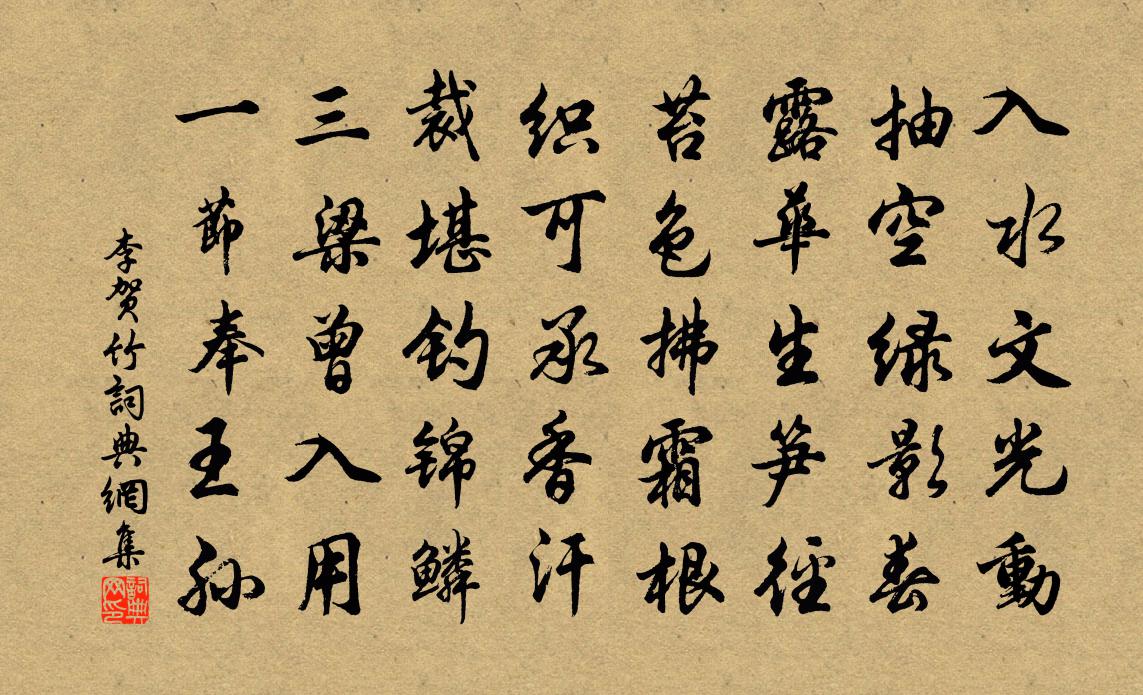 入水文光動
抽空绿影春
露華生笋徑
苔色拂霜根
织可承香汗
裁堪钓锦鳞
三梁曾入用
一節奉王孙
李贺竹詞典網集
詞典網印